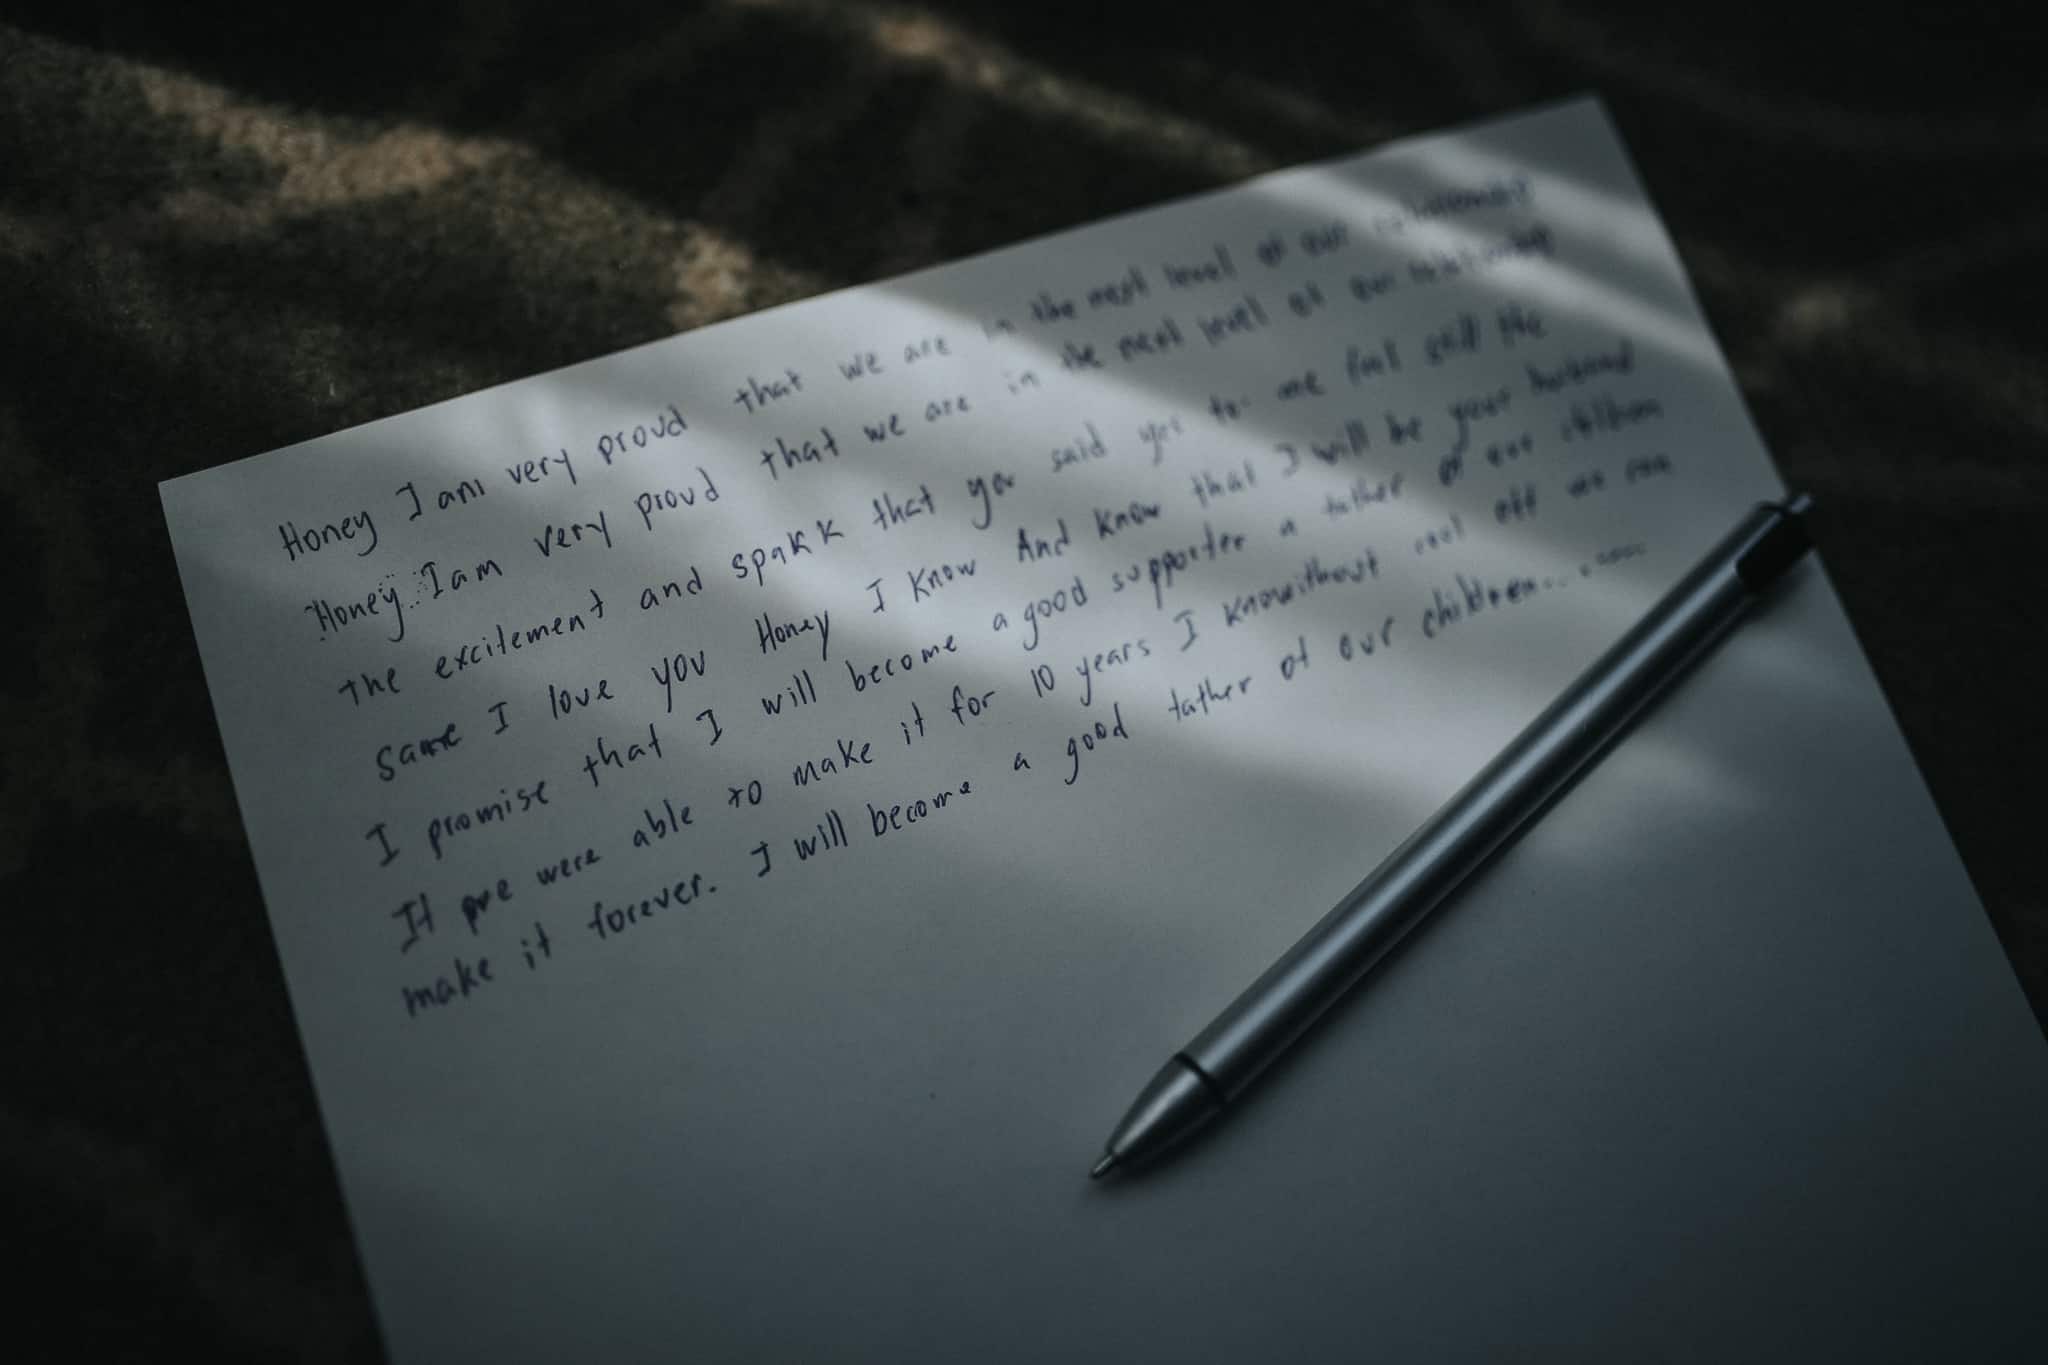 Honey I am very proud that we are in the next level of our relationship
Honey I am very proud that we are in the next level of our relationship
the excitement and spakk that you said yes to me feel still the
same I love you Honey I know And know that I will be your husband
I promise that I will become a good supporter a father of our children
If we were able to make it for 10 years I knowithout cool off we can
make it forever. I will become a good father of our children...